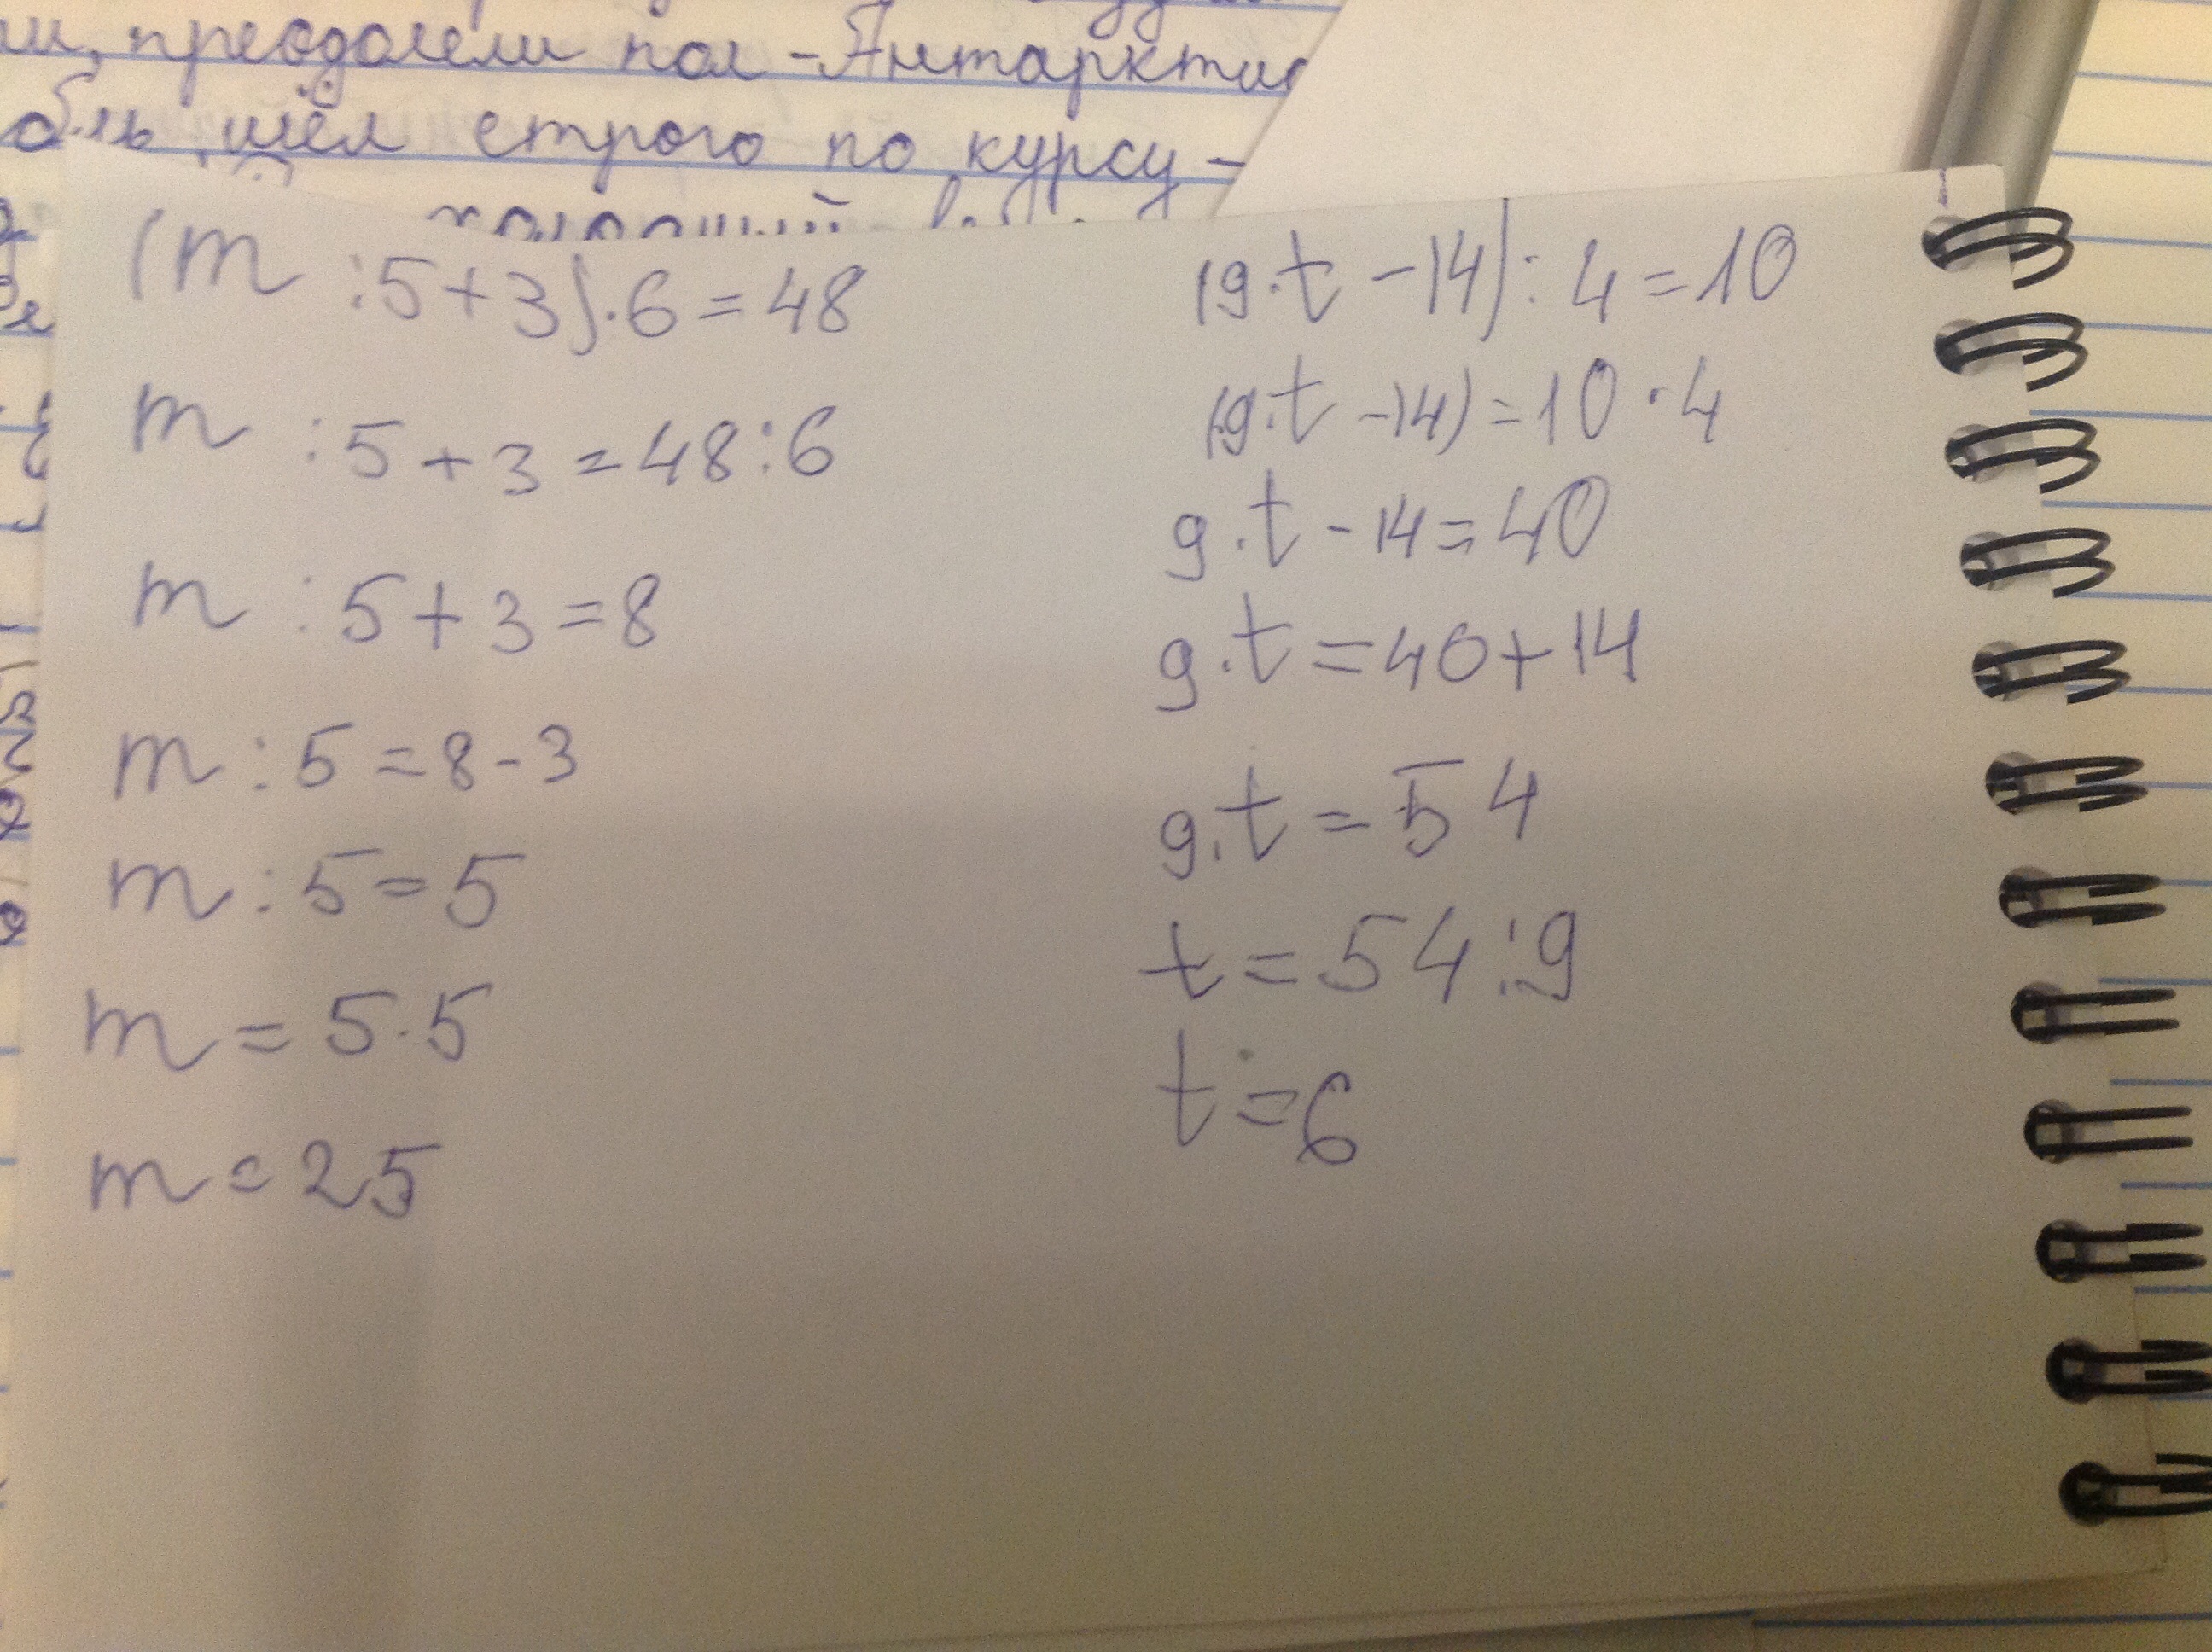 преодолели пол-Антаркти
шёл строго по курсу-
(m :5+3)·6=48
m :5+3=48:6
m :5+3=8
m:5=8-3
m:5=5
m=5·5
m=25
(9·t-14):4=10
(9·t-14)=10·4
9·t-14=40
9·t=40+14
9·t=54
t=54:9
t=6